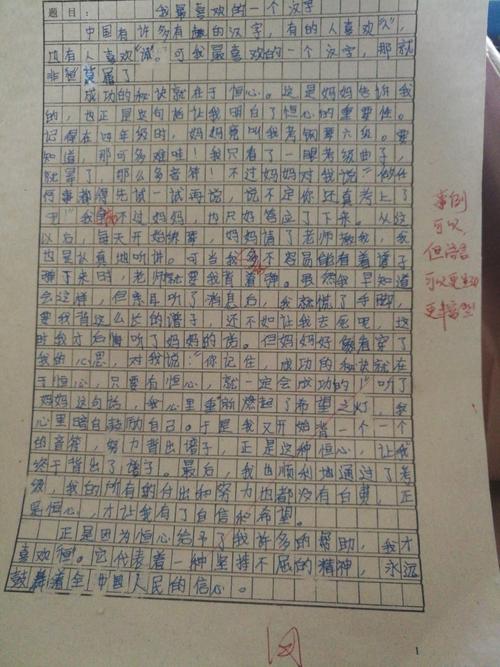 题目：我最喜欢的一个汉字
中国有许多有趣的汉字，有的人喜欢“人”，
也有人喜欢“诚”。可我最喜欢的一个汉字，那就
非“恒”莫属了
成功的秘诀就在于恒心。这是妈妈告诉我
的，也正是这句话让我明白了恒心的重要性。
记得在四年级时，妈妈要叫我考钢琴六级。要
知道，那可多难哇！我只看了一眼考级曲子，
就晕了，那么多音符！不过妈妈对我说：“做任
何事都得先试一试再说，说不定你还真考上了
呢！”我 不过妈妈，也只好答应了下来。从这
以后，每天开始练琴，妈妈请了老师教我，我
也是认真地听讲。可当我 不容易能看着谱子
弹下来时，老师 要我背着弹。虽然我早知道
会这样，但亲耳听了消息后，我放慌了手脚，
要我背这么长的谱子，还不如让我去死吧，这
时我才后悔听了妈妈的话。但妈妈好像看穿了
我的心思，对我说：“你记住，成功的秘诀就在
于恒心，只要有恒心，就一定会成功的！”听了
妈妈这句话，我心里重新燃起了希望之灯，我
心里暗自鼓励自己。于是我又开始背一个一个
的音符，努力背出谱子，正是这种恒心，让我
终于背出了谱子。最后，我也顺利地通过了考
级，我的所有的付出和努力也都没有白费，正
是恒心，才让我有了自信和希望。
正是因为恒心给予了我许多的帮助，我才
喜欢“恒”。它代表着一种坚持不屈的精神，永远
鼓舞着全中国人民的信心。
事例
可以，
但语言
可以更生动
更丰富些
1